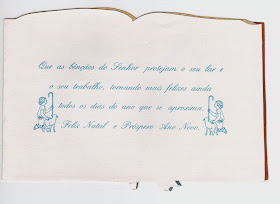 Que as bênçãos do Senhor protejam o seu lar e
o seu trabalho, tornando mais felizes ainda
todos os dias do ano que se aproxima.
Feliz Natal e Próspero Ano Novo.